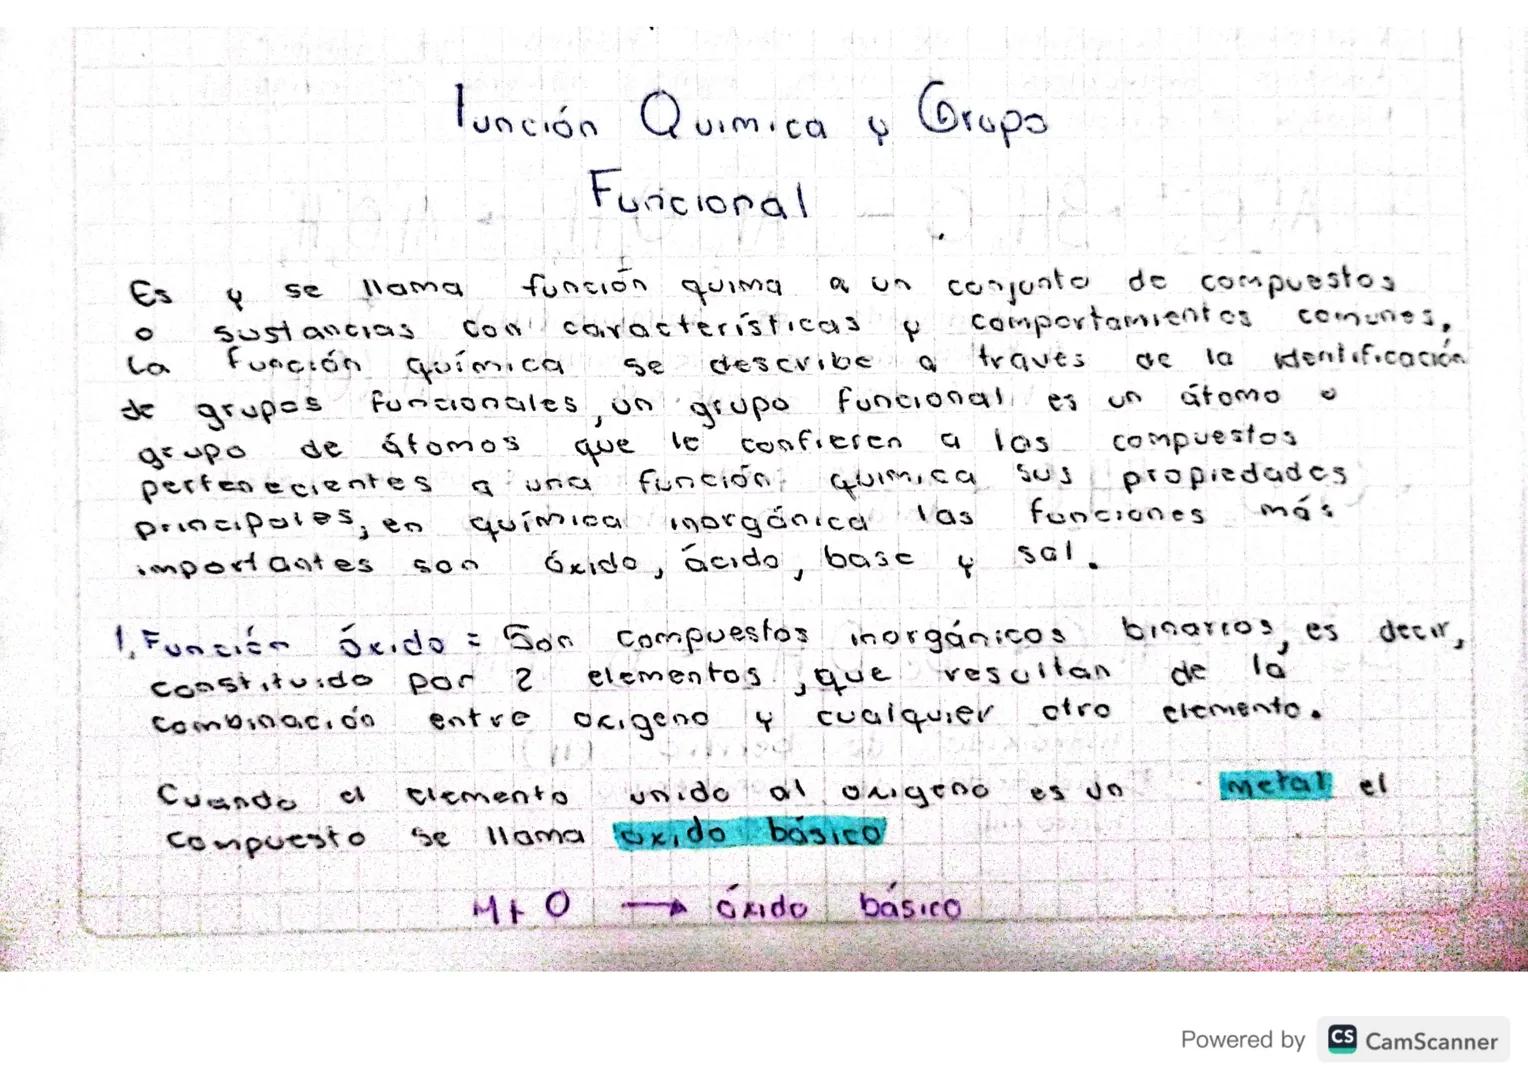 Función Quimica y Grupo
Funcional
Es y se llama función quima a un conjunto de compuestos
o sustancias con características y comportamientos comunes,
La función química se describe a traves de la identificación
de grupos funcionales, un grupo funcional es un átomo o
grupo de átomos que le confieren a los compuestos
pertenecientes a una función química sus propiedades
principales, en química inorgánica las funciones más
importantes son óxido, ácido, base y sal.
1. Función óxido = Son compuestos inorgánicos binarios, es decir,
constituido por 2 elementos, que resultan de la
combinación entre oxigeno y cualquier otro elemento.
Cuando el elemento unido al oxigeno es un metal el
compuesto se llama oxido básico
M + O → óxido básico
Powered by CS CamScanner